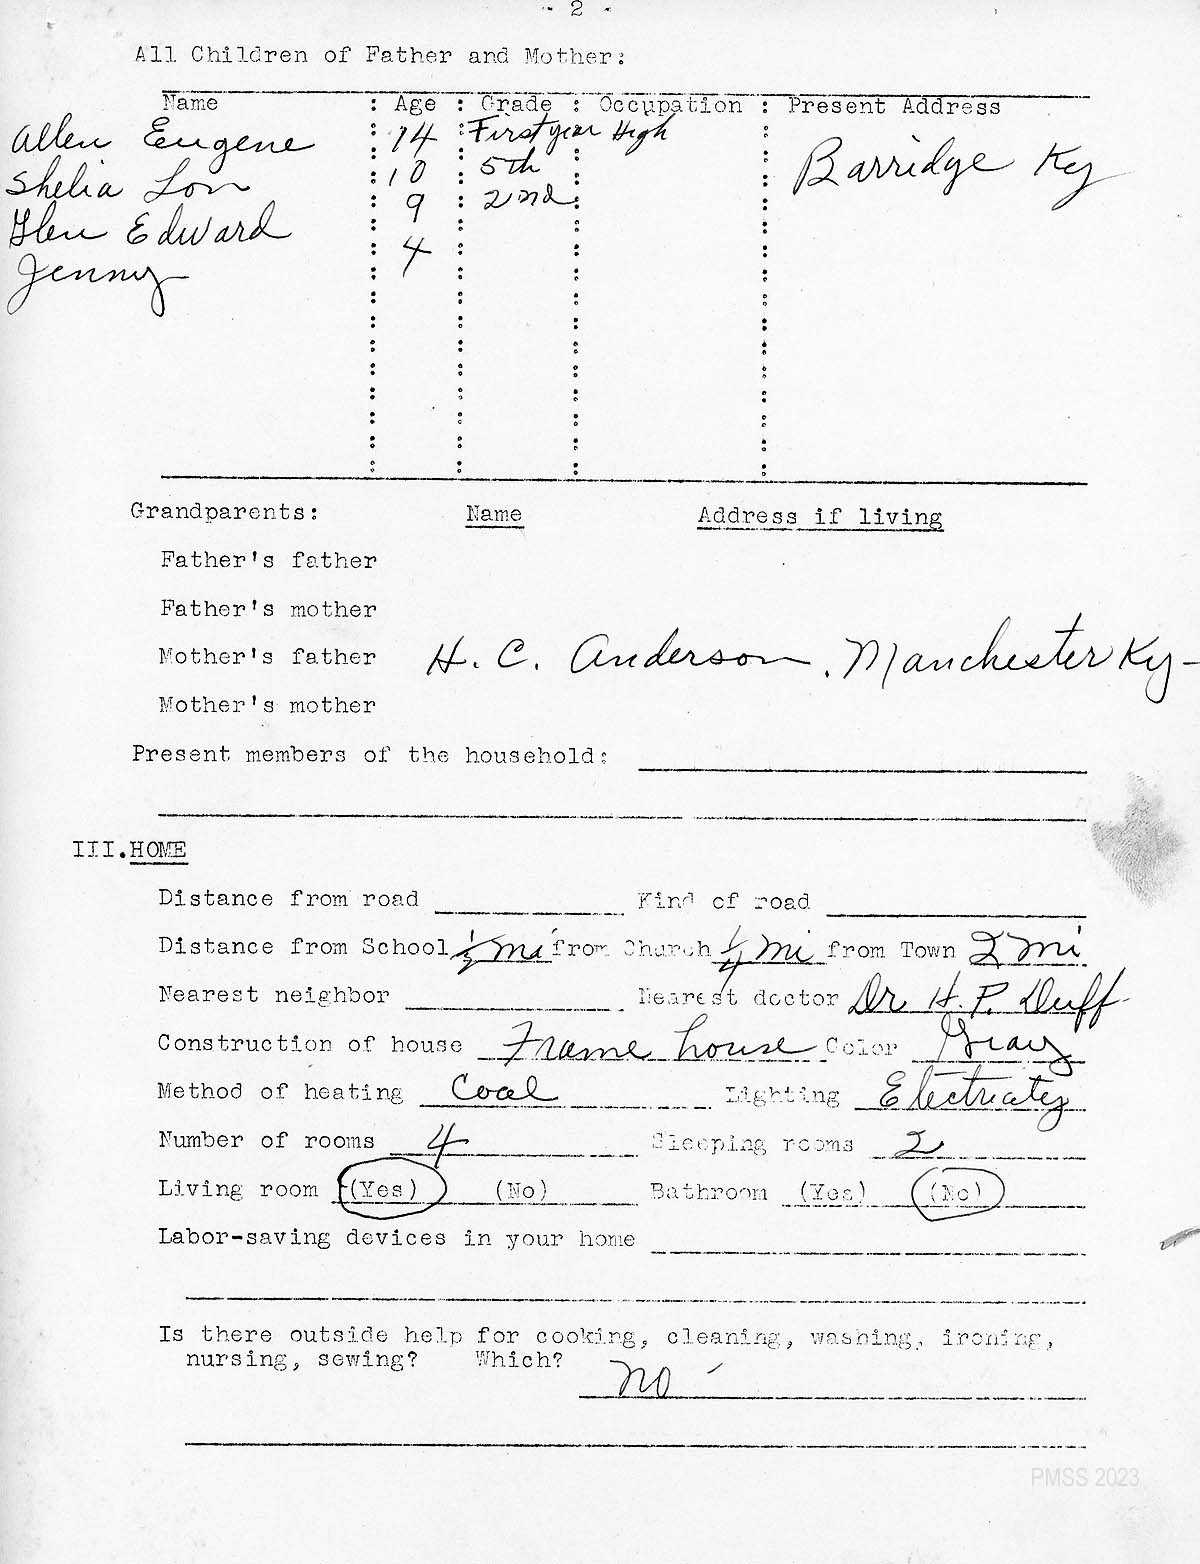 - 2 -
All Children of Father and Mother:
Name : Age : Grade : Occupation : Present Address
Allen Eugene 14 First year High
Shelia Lou 10 5th Barridge Ky
Glen Edward 9 2nd
Jenny 4
Grandparents: Name Address if living
Father's father
Father's mother
Mother's father H. C. Anderson, Manchester Ky-
Mother's mother
Present members of the household:
III. HOME
Distance from road Kind of road
Distance from School 1/2 mi from Church 1/4 mi from Town 2 mi
Nearest neighbor Nearest doctor Dr H. P. Duff
Construction of house Frame house Color Gray
Method of heating Coal Lighting Electricity
Number of rooms 4 Sleeping rooms 2
Living room (Yes) (No) Bathroom (Yes) (No)
Labor-saving devices in your home
Is there outside help for cooking, cleaning, washing, ironing,
nursing, sewing? Which? no
PMSS 2023